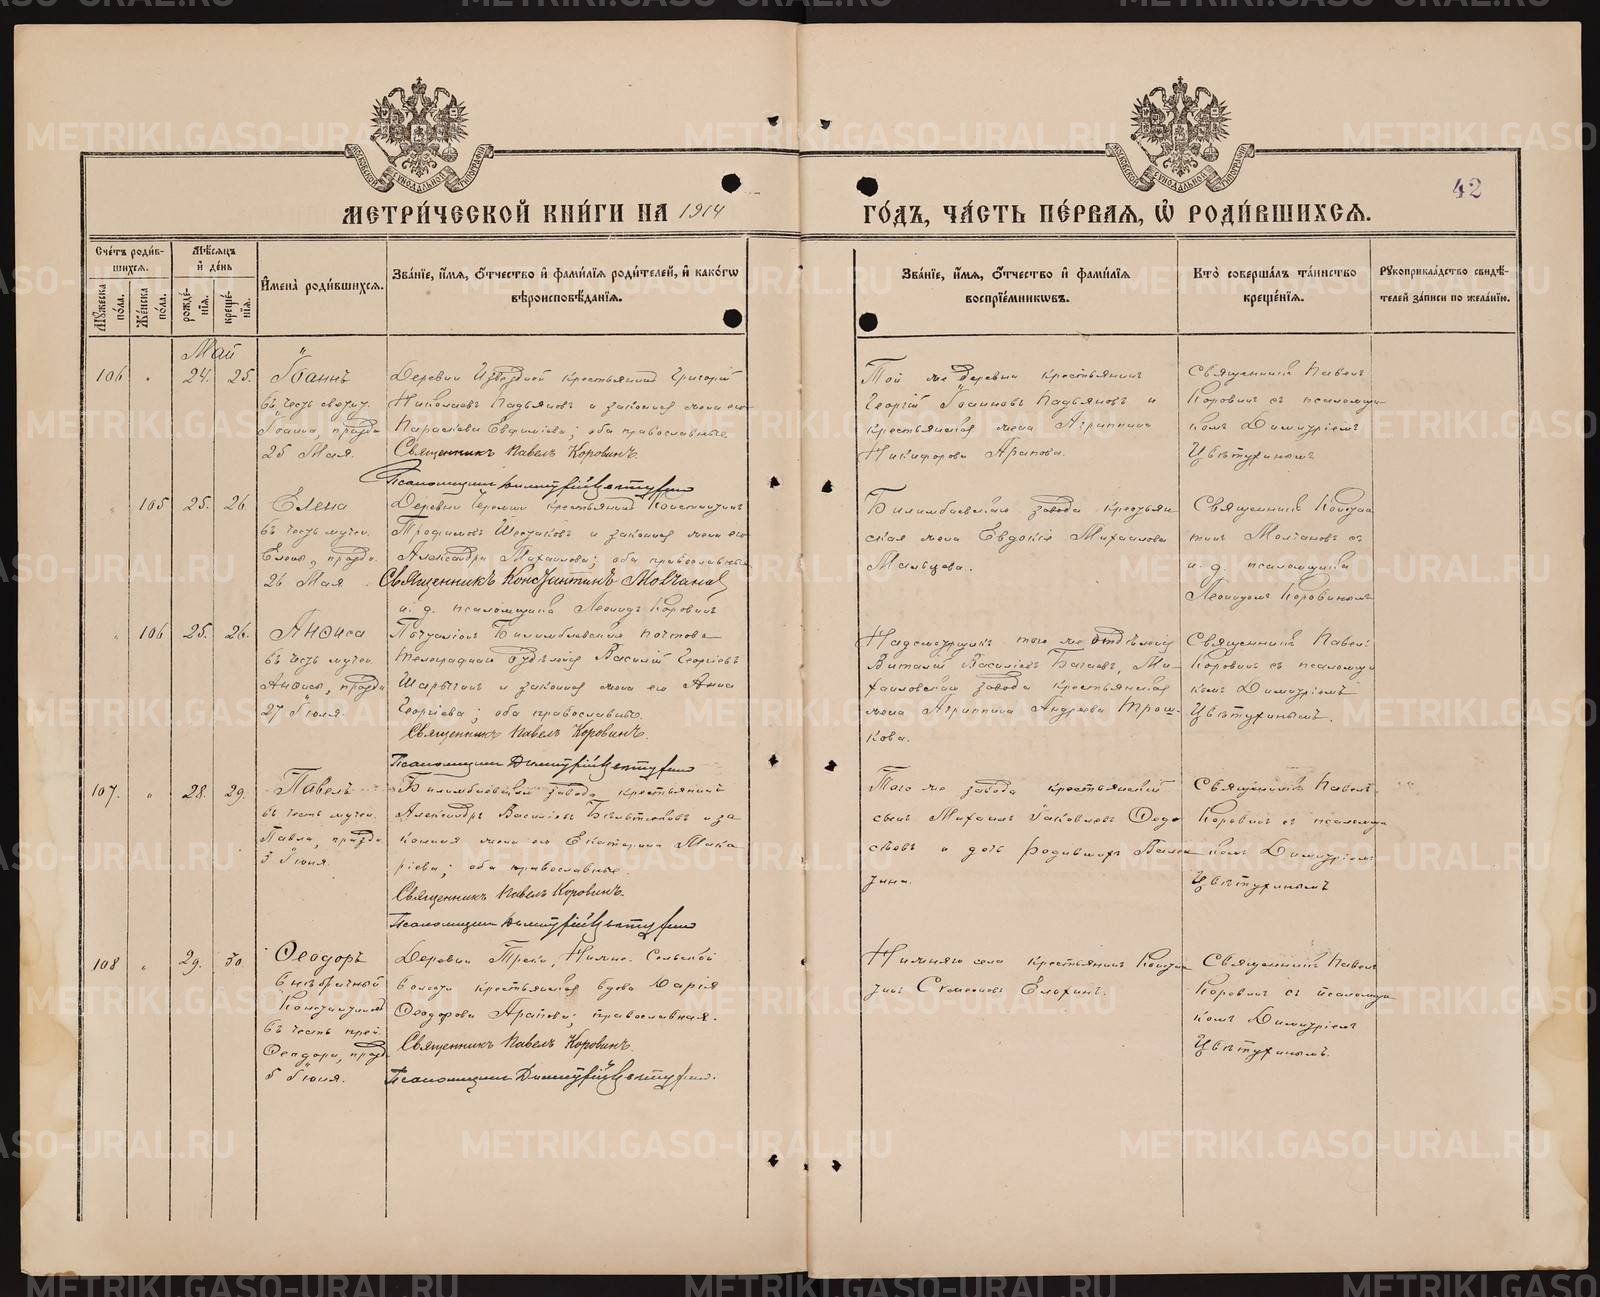 МЕТРИ́ЧЕСКОЙ КНИ́ГИ НА 1914
ГО́ДЪ, ЧА́СТЬ ПЕ́РВАЯ, Ѡ РОДИ́ВШИХСЯ.
42
Сче́тъ роди́в-
шихся.
Мꙋ́жеска по́ла.
Же́нска по́ла.
Мѣ́сяцъ
и҆ де́нь
рожде́-
нїя.
креще́-
нїя.
И҆мена̀ роди́вшихся.
Зва́нїе, и҆́мя, ѻ҆́тчество и҆ фами́лїя роди́телей, и҆ како́гѡ
вѣроисповѣ́данїя.
Зва́нїе, и҆́мя, ѻ҆́тчество и҆ фами́лїя
воспрїе́мникѡвъ.
Кто̀ соверша́лъ та́инство
креще́нїя.
Рꙋкоприкла́дство свидѣ́-
телей за́писи по жела́нїю.
Май
106 " 24. 25. Іоаннъ
въ честь
Іоанна, праздн.
25 Мая.
Деревни крестьянинъ Григорій
Николаевъ и законная жена его
Параскева Евфиміева; оба православные.
Священникъ Павелъ Коровинъ.
Псаломщикъ Димитрій Цвѣтухинъ
Той же деревни крестьянинъ
Георгій Іоанновъ и
крестьянская жена Агриппина
Никифорова Арапова.
Священникъ Павелъ
Коровинъ съ псаломщи-
комъ Димитріемъ
Цвѣтухинымъ
" 105 25. 26. Елена
въ честь мучен.
Елены, праздн.
26 Мая.
Деревни крестьянинъ Константинъ
Трофимовъ и законная жена его
Александра Михаилова; оба православные.
Священникъ Константинъ Молчановъ
и. д. псаломщика Леонидъ Коровинъ
Билимбаевскаго завода крестьян-
ская жена Евдокія Михаилова
Мальцева.
Священникъ Констан-
тинъ Молчановъ съ
и. д. псаломщика
Леонидомъ Коровинымъ
" 106 25. 26. Анѳиса
въ честь мучен.
Анѳисы, праздн.
27 Іюля.
Билимбаевской почтово
телеграфной Василій Георгіевъ
Шарыгинъ и законная жена его Анна
Георгіева; оба православные.
Священникъ Павелъ Коровинъ.
Псаломщикъ Димитрій Цвѣтухинъ
Надсмотрщикъ того же отдѣленія
Виталій Василіевъ Ми-
хаиловскаго завода крестьянская
жена Агриппина Андреева Трош-
кова.
Священникъ Павелъ
Коровинъ съ псаломщи-
комъ Димитріемъ
Цвѣтухинымъ.
107. " 28. 29. Павелъ
въ честь мучен.
Павла, праздн.
3 Іюня.
Билимбаевскаго завода крестьянинъ
Александръ Василіевъ и за-
конная жена его Екатерина Мака-
ріева; оба православные.
Священникъ Павелъ Коровинъ.
Псаломщикъ Димитрій Цвѣтухинъ
Того же завода крестьянскій
сынъ Михаилъ Іаковлевъ Ѳедо-
сѣевъ и дочь родившихъ Вален-
тина.
Священникъ Павелъ
Коровинъ съ псаломщи-
комъ Димитріемъ
Цвѣтухинымъ
108 " 29. 30. Ѳеодоръ
внѣбрачный
Константиновъ
въ честь преп.
Ѳеодора, празд.
5 Іюня.
Деревни Треки, Нижне-Сельской
волости крестьянская вдова Дарія
Ѳеодорова Арапова; православная.
Священникъ Павелъ Коровинъ.
Псаломщикъ Димитрій Цвѣтухинъ.
Нижняго села крестьянинъ Констан-
тинъ Симеоновъ Елохинъ.
Священникъ Павелъ
Коровинъ съ псаломщи-
комъ Димитріемъ
Цвѣтухинымъ.
METRIKI.GASO-URAL.RU